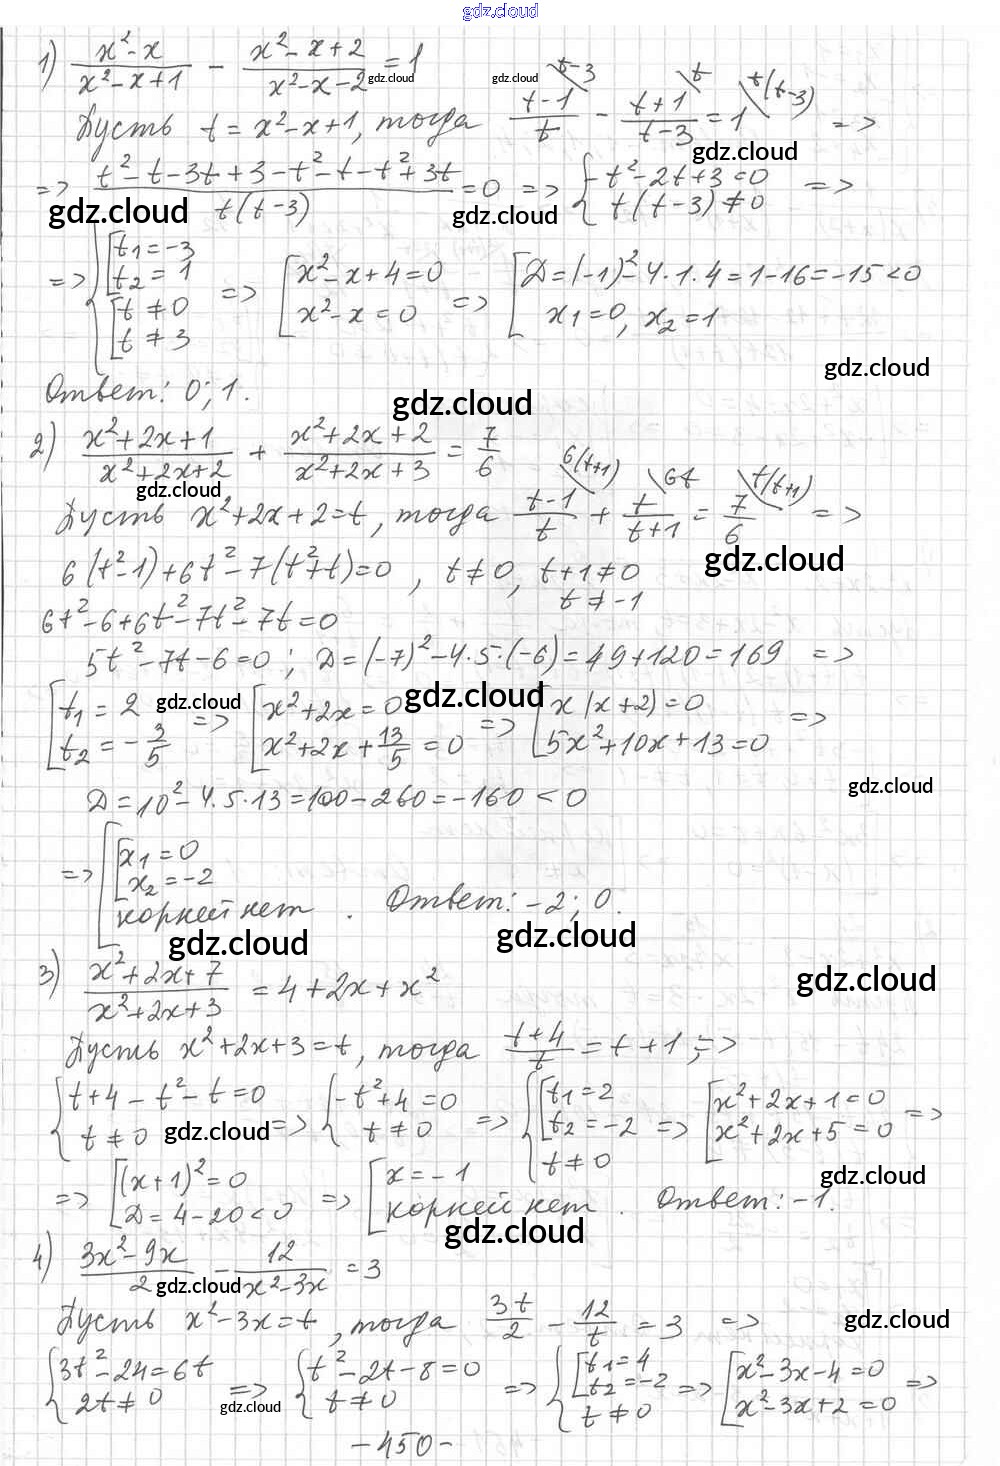 gdz.cloud
1) (x²-x)/(x²-x+1) - (x²-x+2)/(x²-x-2) = 1 gdz.cloud gdz.cloud
Пусть t = x²-x+1, тогда (t-1)/t \t-3 - (t+1)/(t-3) \t = 1 \t(t-3) =>
gdz.cloud
=> (t²-t-3t+3-t²-t-t²+3t)/(t(t-3)) = 0 => { t²-2t+3=0 ; t(t-3)≠0 =>
gdz.cloud gdz.cloud
=> { [ t₁=-3 ; t₂=1 ; [ t≠0 ; t≠3 => [ x²-x+4=0 ; x²-x=0 => [ D=(-1)²-4·1·4=1-16=-15<0 ; x₁=0, x₂=1
gdz.cloud
Ответ: 0; 1.
gdz.cloud
2) (x²+2x+1)/(x²+2x+2) + (x²+2x+2)/(x²+2x+3) = 7/6
gdz.cloud
Пусть x²+2x+2=t, тогда (t-1)/t \6(t+1) + t/(t+1) \6t = 7/6 \t(t+1) =>
gdz.cloud
6(t²-1)+6t²-7(t²+t)=0, t≠0, t+1≠0
t≠-1
6t²-6+6t²-7t²-7t=0
5t²-7t-6=0; D=(-7)²-4·5·(-6)=49+120=169 =>
[ t₁=2 ; t₂=-3/5 => [ x²+2x=0 ; x²+2x+13/5=0 => [ x(x+2)=0 ; 5x²+10x+13=0 =>
gdz.cloud gdz.cloud
D=10²-4·5·13=100-260=-160<0
gdz.cloud
=> [ [ x₁=0 ; x₂=-2 ; корней нет. Ответ: -2; 0.
gdz.cloud gdz.cloud
3) (x²+2x+7)/(x²+2x+3) = 4+2x+x²
gdz.cloud
Пусть x²+2x+3=t, тогда (t+4)/t = t+1; =>
{ t+4-t²-t=0 ; t≠0 => { -t²+4=0 ; t≠0 => { [ t₁=2 ; t₂=-2 ; t≠0 => [ x²+2x+1=0 ; x²+2x+5=0 =>
gdz.cloud
=> [ (x+1)²=0 ; D=4-20<0 => [ x=-1 ; корней нет. Ответ: -1.
gdz.cloud gdz.cloud
4) (3x²-9x)/2 - 12/(x²-3x) = 3
gdz.cloud
Пусть x²-3x=t, тогда 3t/2 - 12/t = 3 =>
gdz.cloud
{ 3t²-24=6t ; 2t≠0 => { t²-2t-8=0 ; t≠0 => { [ t₁=4 ; t₂=-2 ; t≠0 => [ x²-3x-4=0 ; x²-3x+2=0 =>
gdz.cloud
-450-